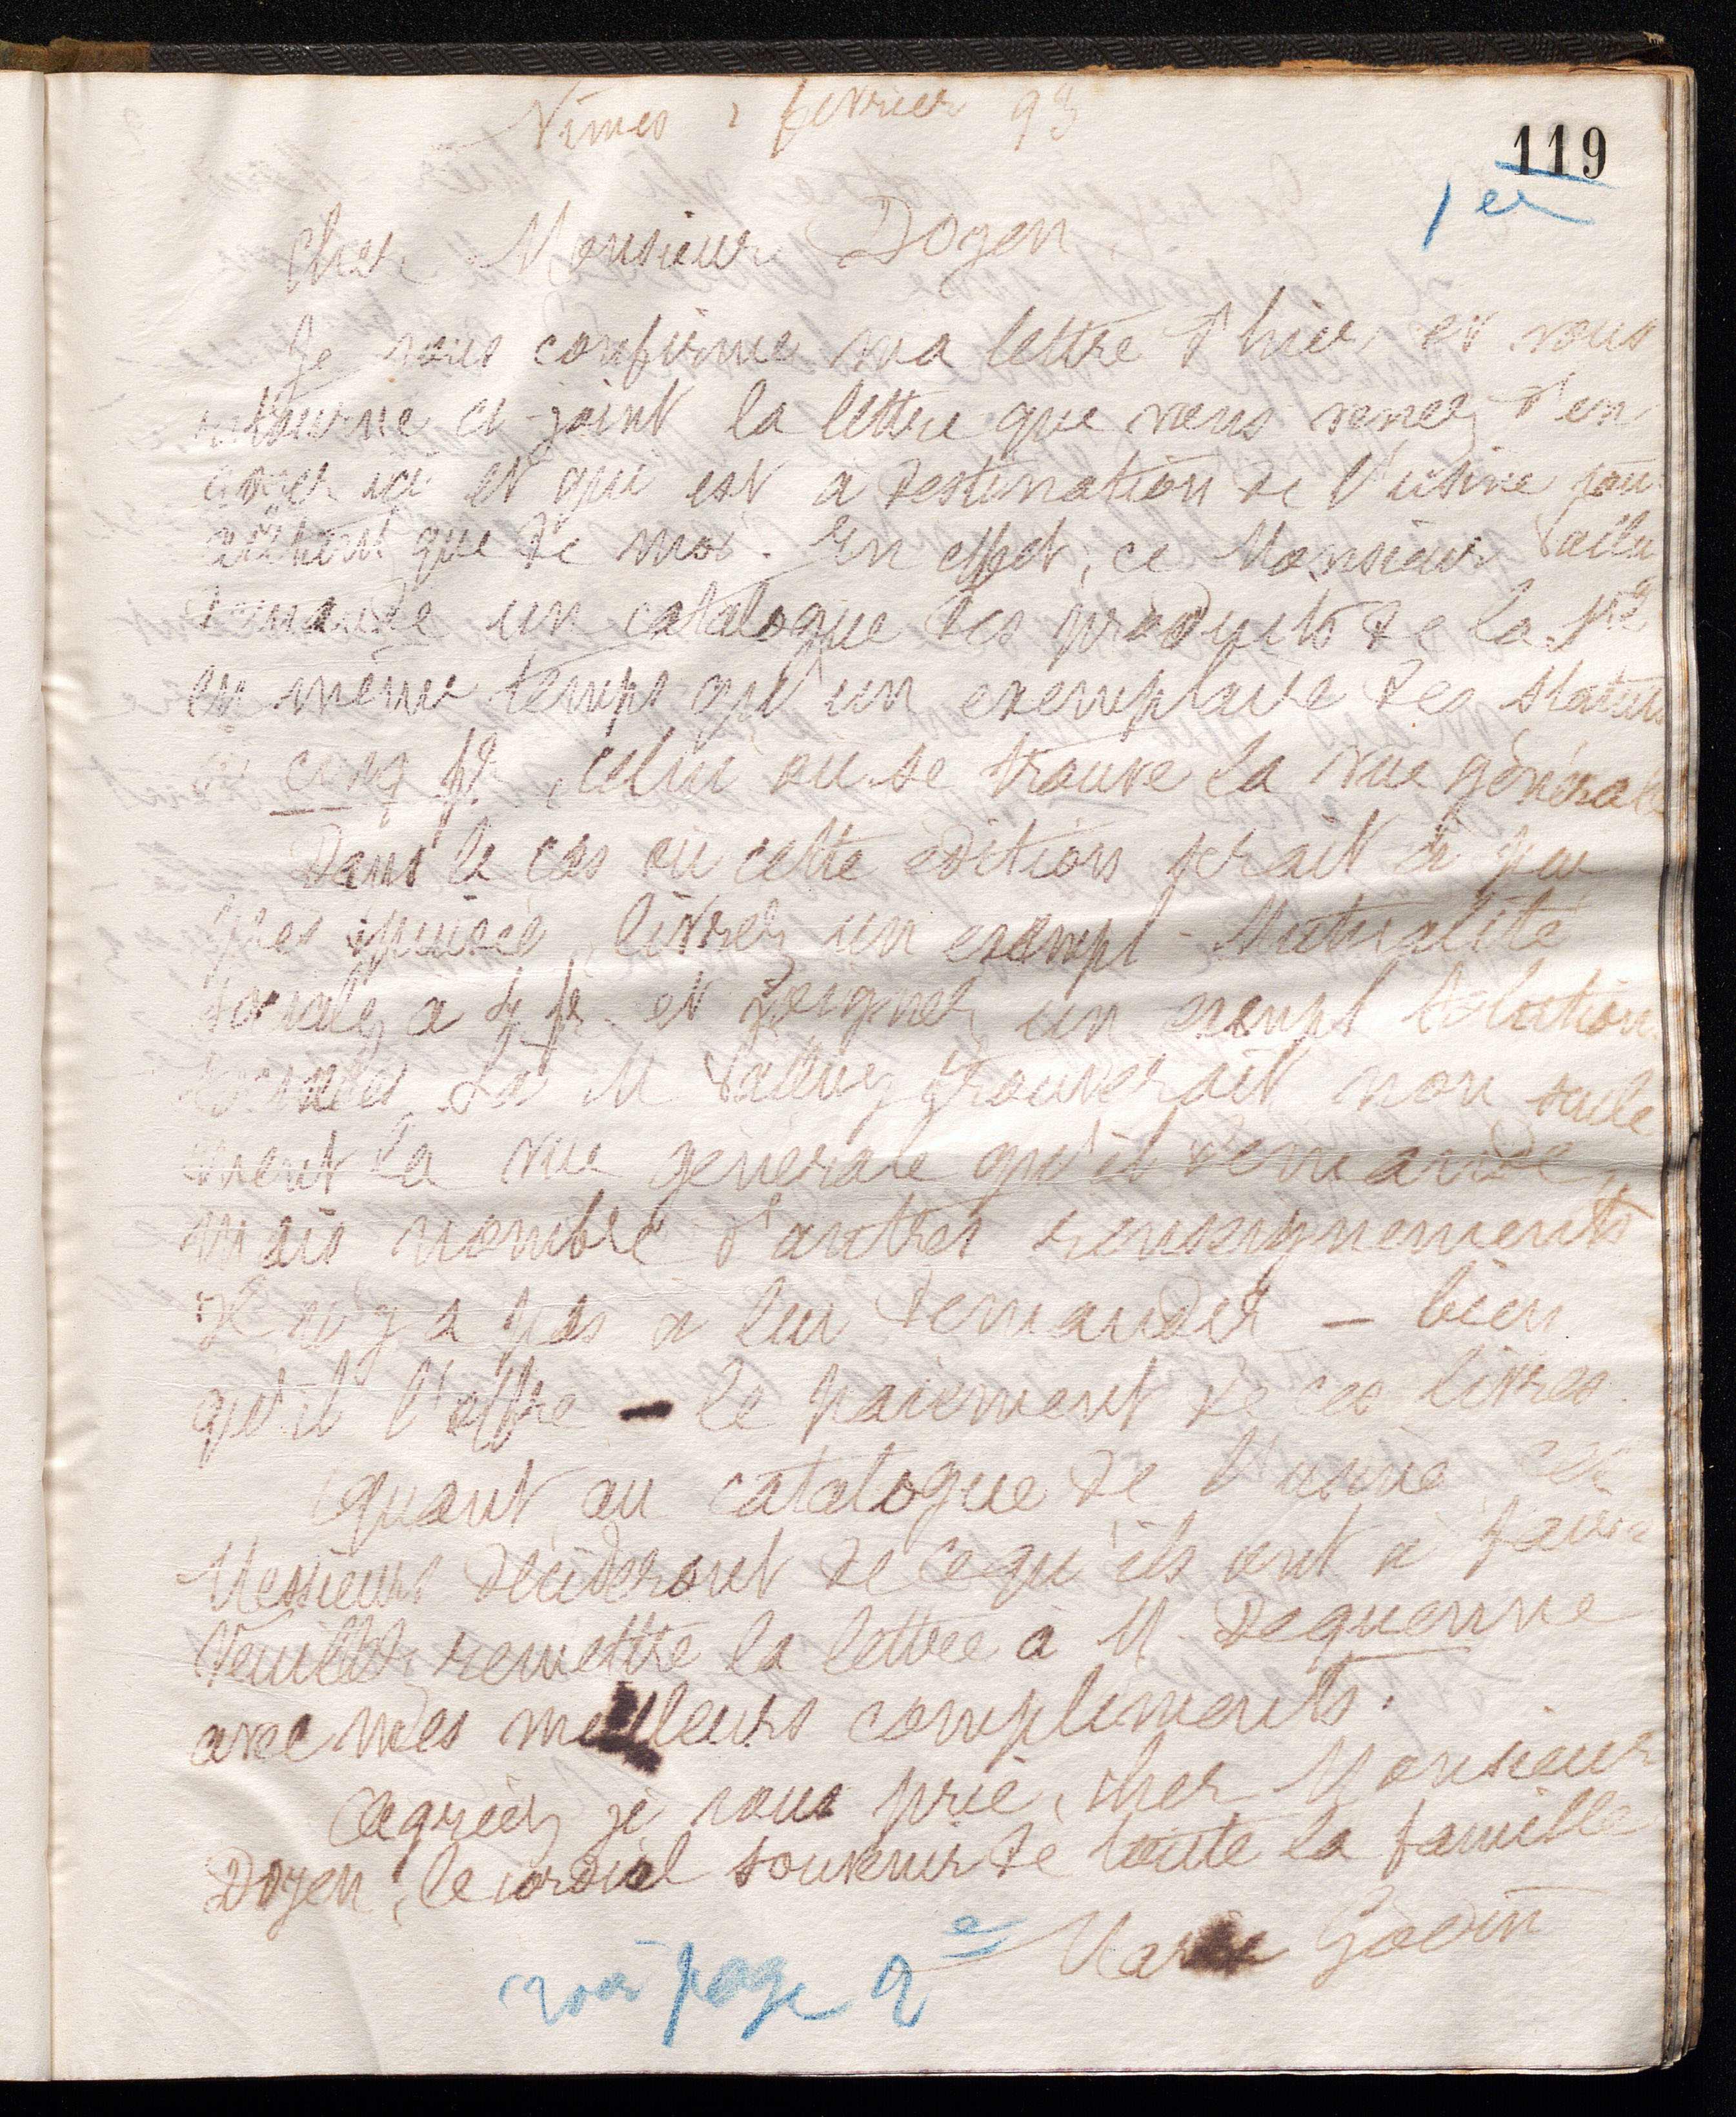 Nimes 2 février 93
119
1er
Cher Monsieur Doyen
Je vous confirme ma lettre d'hier et vous
retourne ci-joint la lettre que vous venez d'en
voyer ici et qui est à destination de l'usine
autant que de moi. En effet, ce Monsieur
demande un catalogue des produits de la Sté
en même temps qu'un exemplaire des statuts
à cinq fr, celui ou se trouve la vue générale
Dans le cas où cette édition serait à peu
près épuisée, livrez un exempl. Mutualité
sociale, a 4 fr. et joignez un exempl Solutions
sociales. Là M trouverait non seule
ment la vue générale qu'il demande,
mais nombre d'autres renseignements
Il n'y a pas à lui demander - bien
qu'il l'offre - le paiement de ces livres.
Quant au catalogue de l'usine, ces
Messieurs décideront de ce qu'ils ont à faire
Veuillez remettre la lettre à M Dequenne
avec mes meilleurs compliments.
Agréez je vous prie, cher Monsieur
Doyen, le cordial souvenir de toute la famille
Marie Godin
voir page 2e